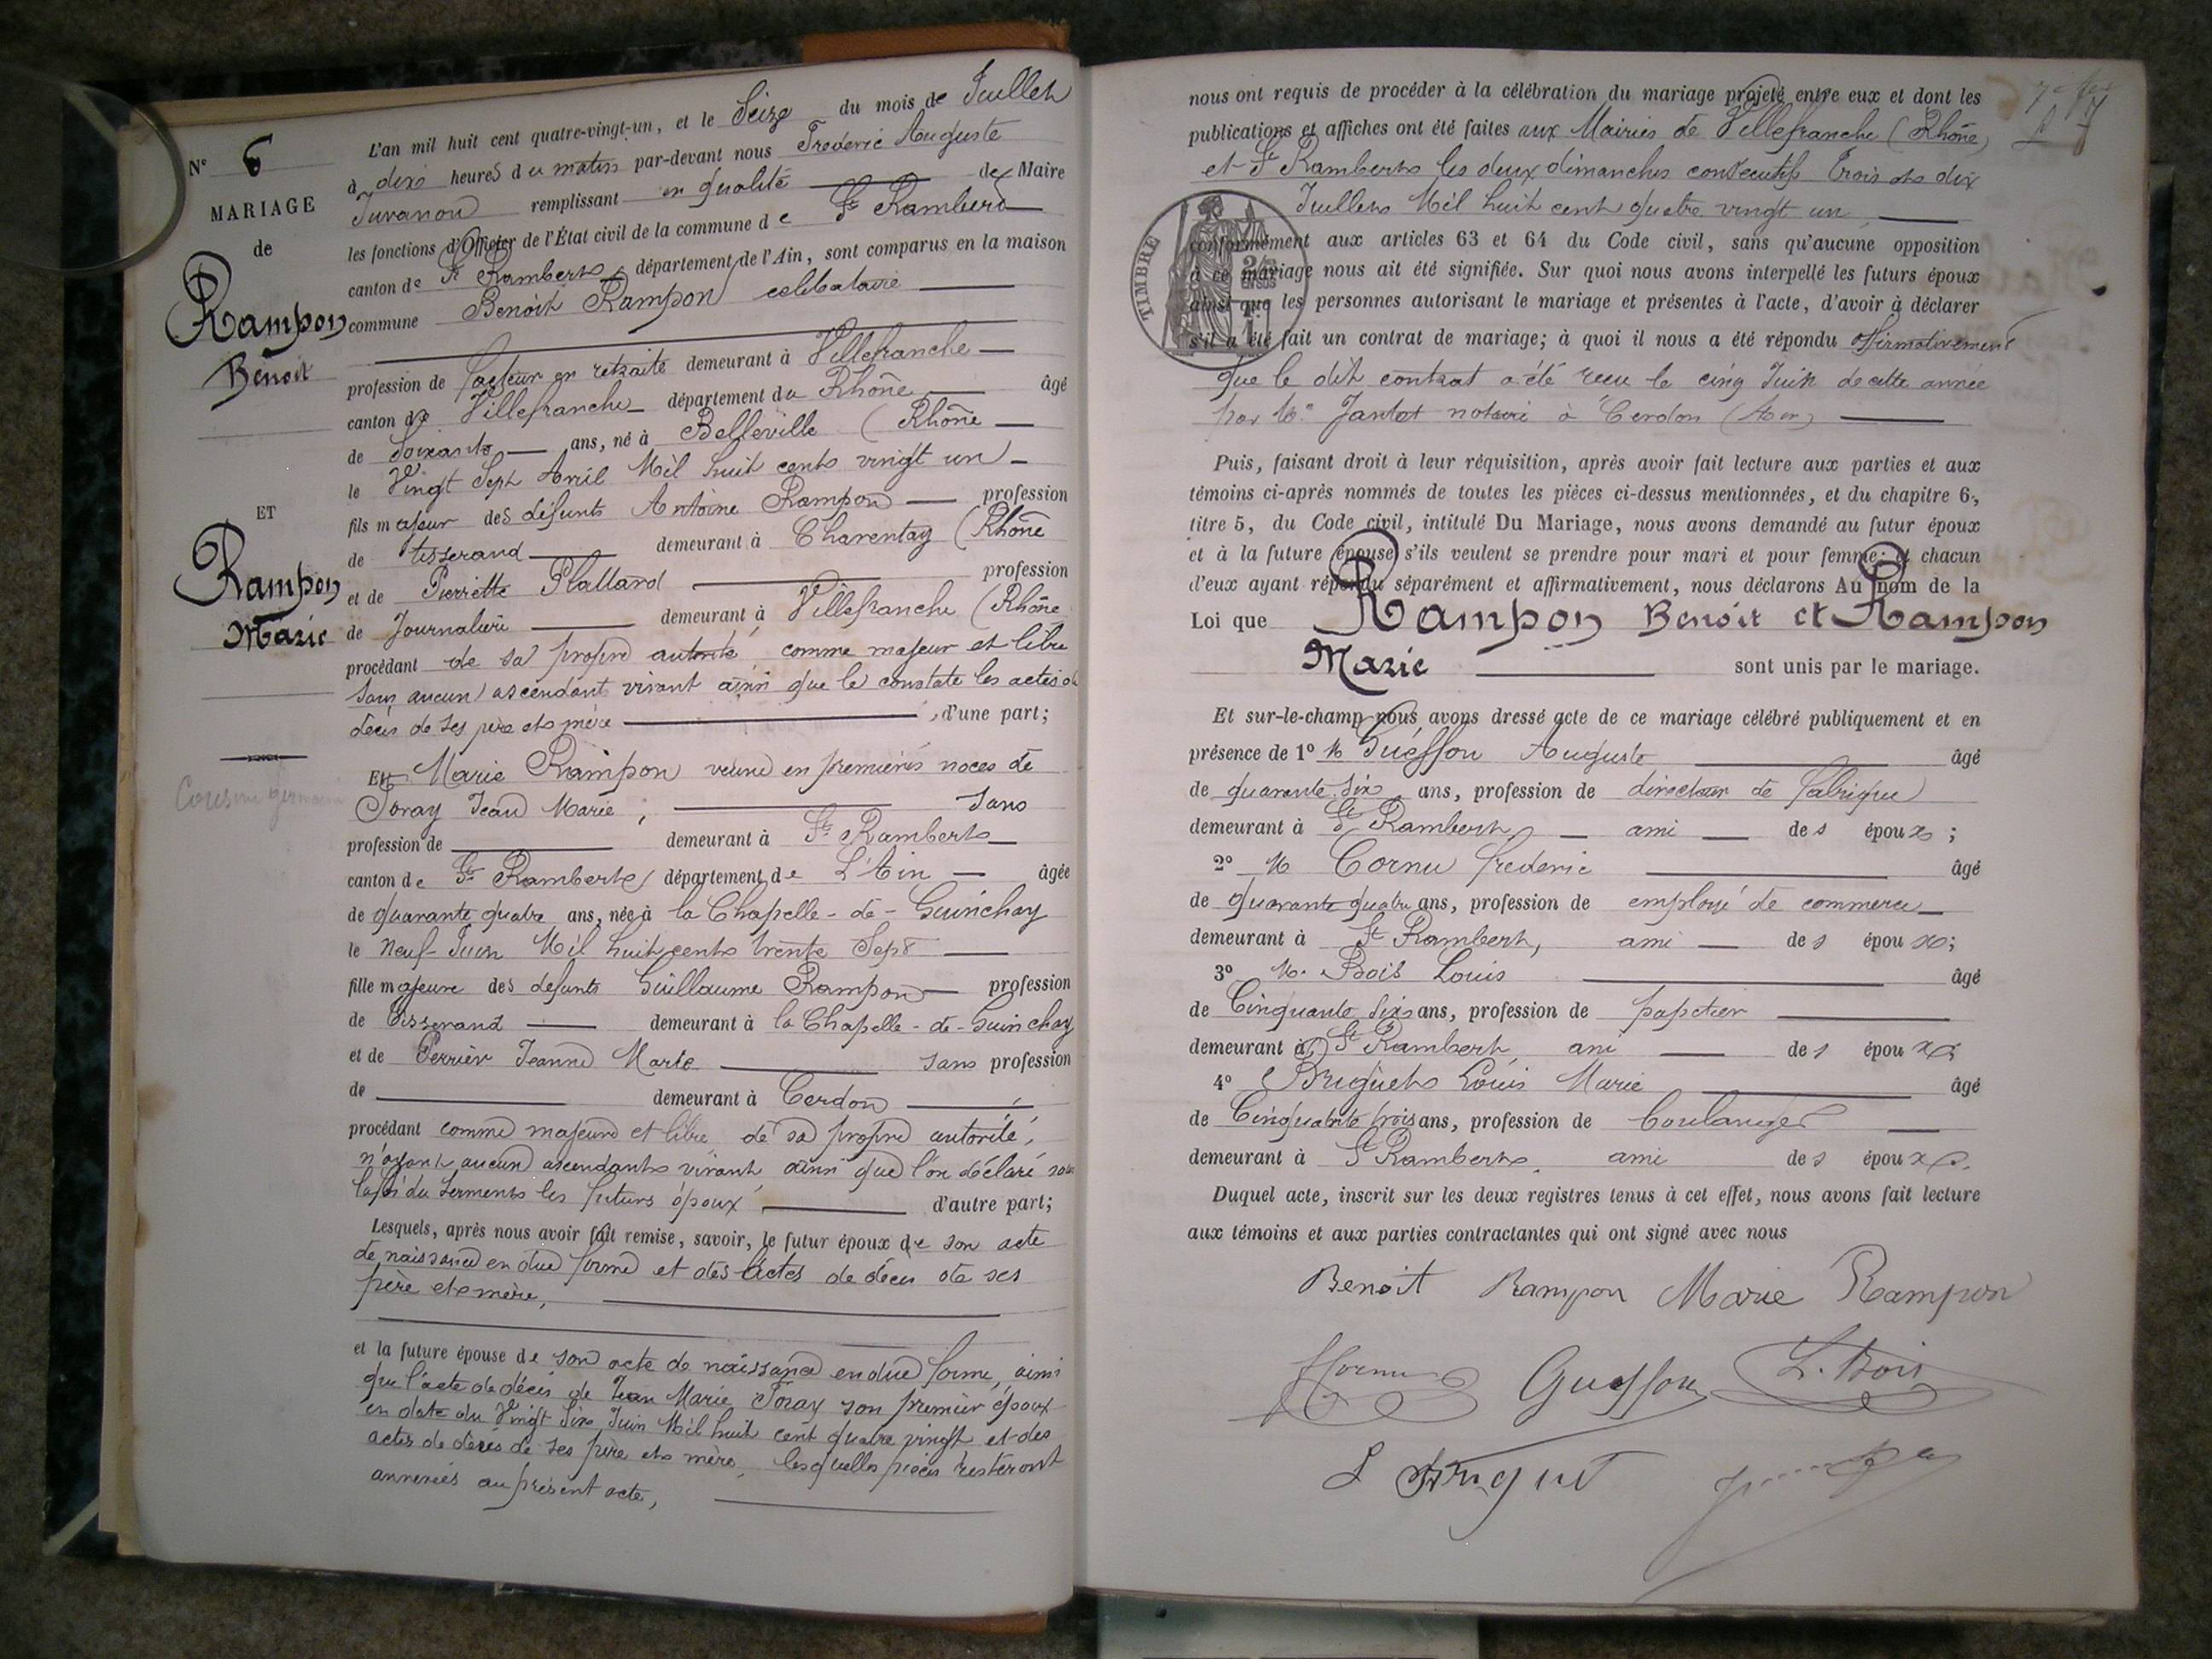 N° 6
MARIAGE
de
Rampon
Benoit
ET
Rampon
Marie
Cousine germaine
L'an mil huit cent quatre-vingt-un, et le Seize du mois de Juillet
à dix heures du matin par-devant nous Frederic Auguste
Juvanon remplissant en qualité de Maire
les fonctions d'Officier de l'État civil de la commune de St Rambert
canton de St Rambert, département de l'Ain, sont comparus en la maison
commune Benoit Rampon celibataire
profession de facteur en retraite demeurant à Villefranche
canton de Villefranche département du Rhône âgé
de Soixante ans, né à Belleville (Rhône
le Vingt Sept Avril Mil huit cent vingt un
fils majeur des défunts Antoine Rampon profession
de tisserand demeurant à Charentay (Rhône
et de Pierrette Plattard profession
de Journalière demeurant à Villefranche (Rhône
procédant de sa propre autorité comme majeur et libre
sans aucun ascendant vivant ainsi que le constate les actes de
décès de ses père et mère, d'une part;
Et Marie Rampon veuve en premières noces de
Foray Jean Marie; Sans
profession de demeurant à St Rambert
canton de St Rambert département de L'Ain âgée
de quarante quatre ans, née à la Chapelle-de-Guinchay
le Neuf Juin Mil huit cent trente Sept
fille majeure des defunts Guillaume Rampon profession
de tisserand demeurant à la Chapelle-de-Guinchay
et de Perrier Jeanne Marie sans profession
de demeurant à Cerdon
procédant comme majeure et libre de sa propre autorité,
n'ayant aucun ascendants vivant ainsi que l'on déclaré sous
la foi du serments les futurs époux d'autre part;
Lesquels, après nous avoir fait remise, savoir, le futur époux de son acte
de naissance en due forme et des actes de décès de ses
père et mère,
et la future épouse de son acte de naissance en due forme, ainsi
que l'acte de décès de Jean Marie Foray son premier époux
en date du Vingt Six Juin Mil huit cent quatre vingt, et des
actes de décès de ses père et mère, lesquelles pièces resteront
annexées au présent acte,
7
nous ont requis de procéder à la célébration du mariage projeté entre eux et dont les
publications et affiches ont été faites aux Mairies de Villefranche (Rhône)
et St Rambert les deux dimanches consecutifs trois et dix
Juillet Mil huit cent quatre vingt un
TIMBRE
conformément aux articles 63 et 64 du Code civil, sans qu'aucune opposition
à ce mariage nous ait été signifiée. Sur quoi nous avons interpellé les futurs époux
ainsi que les personnes autorisant le mariage et présentes à l'acte, d'avoir à déclarer
s'il a été fait un contrat de mariage; à quoi il nous a été répondu affirmativement
que le dit contrat a été reçu le cinq Juin de cette année
par Me Jantet notaire à Cerdon (Ain)
Puis, faisant droit à leur réquisition, après avoir fait lecture aux parties et aux
témoins ci-après nommés de toutes les pièces ci-dessus mentionnées, et du chapitre 6,
titre 5, du Code civil, intitulé Du Mariage, nous avons demandé au futur époux
et à la future épouse s'ils veulent se prendre pour mari et pour femme; et chacun
d'eux ayant répondu séparément et affirmativement, nous déclarons Au nom de la
Loi que Rampon Benoit et Rampon
Marie sont unis par le mariage.
Et sur-le-champ nous avons dressé acte de ce mariage célébré publiquement et en
présence de 1° M Gueffon Auguste âgé
de quarante six ans, profession de directeur de fabrique
demeurant à St Rambert ami des époux;
2° M Cornu frederic âgé
de quarante quatre ans, profession de employé de commerce
demeurant à St Rambert, ami des époux;
3° M. Bois Louis âgé
de Cinquante six ans, profession de papetier
demeurant à St Rambert, ami des époux;
4° Bruguet Louis Marie âgé
de Cinquante trois ans, profession de boulanger
demeurant à St Rambert, ami des époux.
Duquel acte, inscrit sur les deux registres tenus à cet effet, nous avons fait lecture
aux témoins et aux parties contractantes qui ont signé avec nous
Benoit Rampon Marie Rampon
Cornu Gueffon L. Bois
L Bruguet